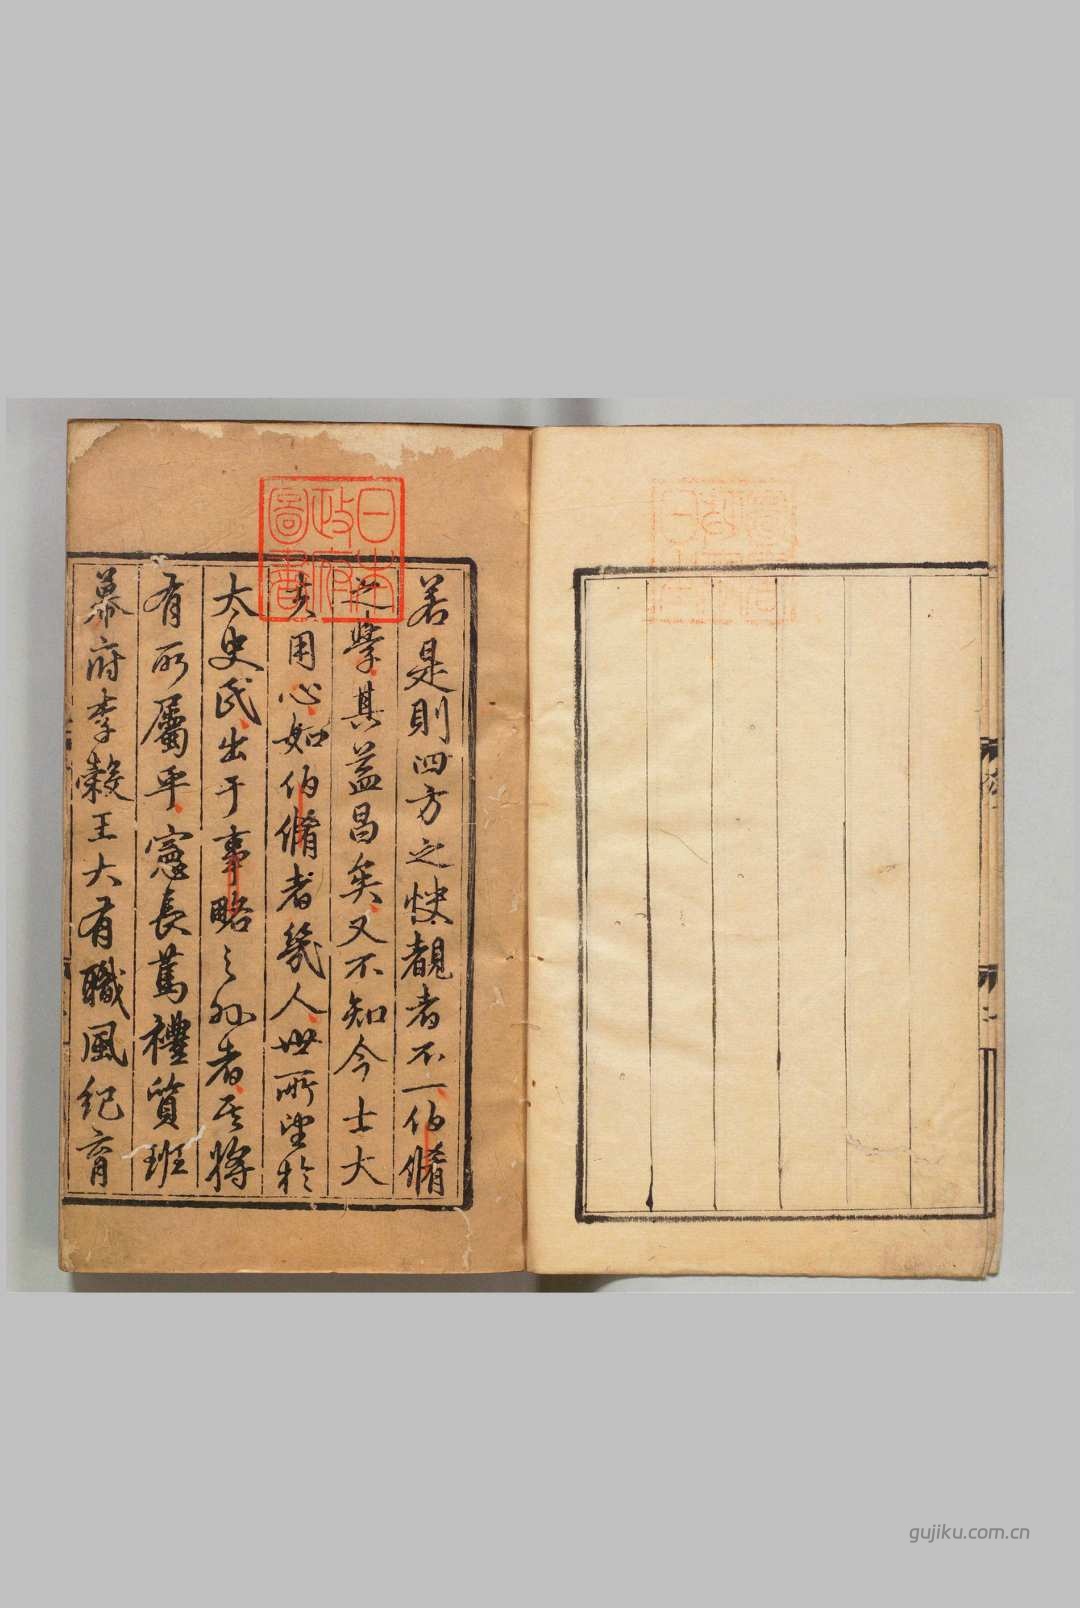 若是則四方之快覩者不一伯脩
之學其益昌矣又不知今士大
夫用心如伯脩者幾人世所望於
太史氏出于事略之外者其將
有所屬乎憲長篤禮質班
幕府李穀王大有職風紀育
日本
政府
圖書
gujiku.com.cn